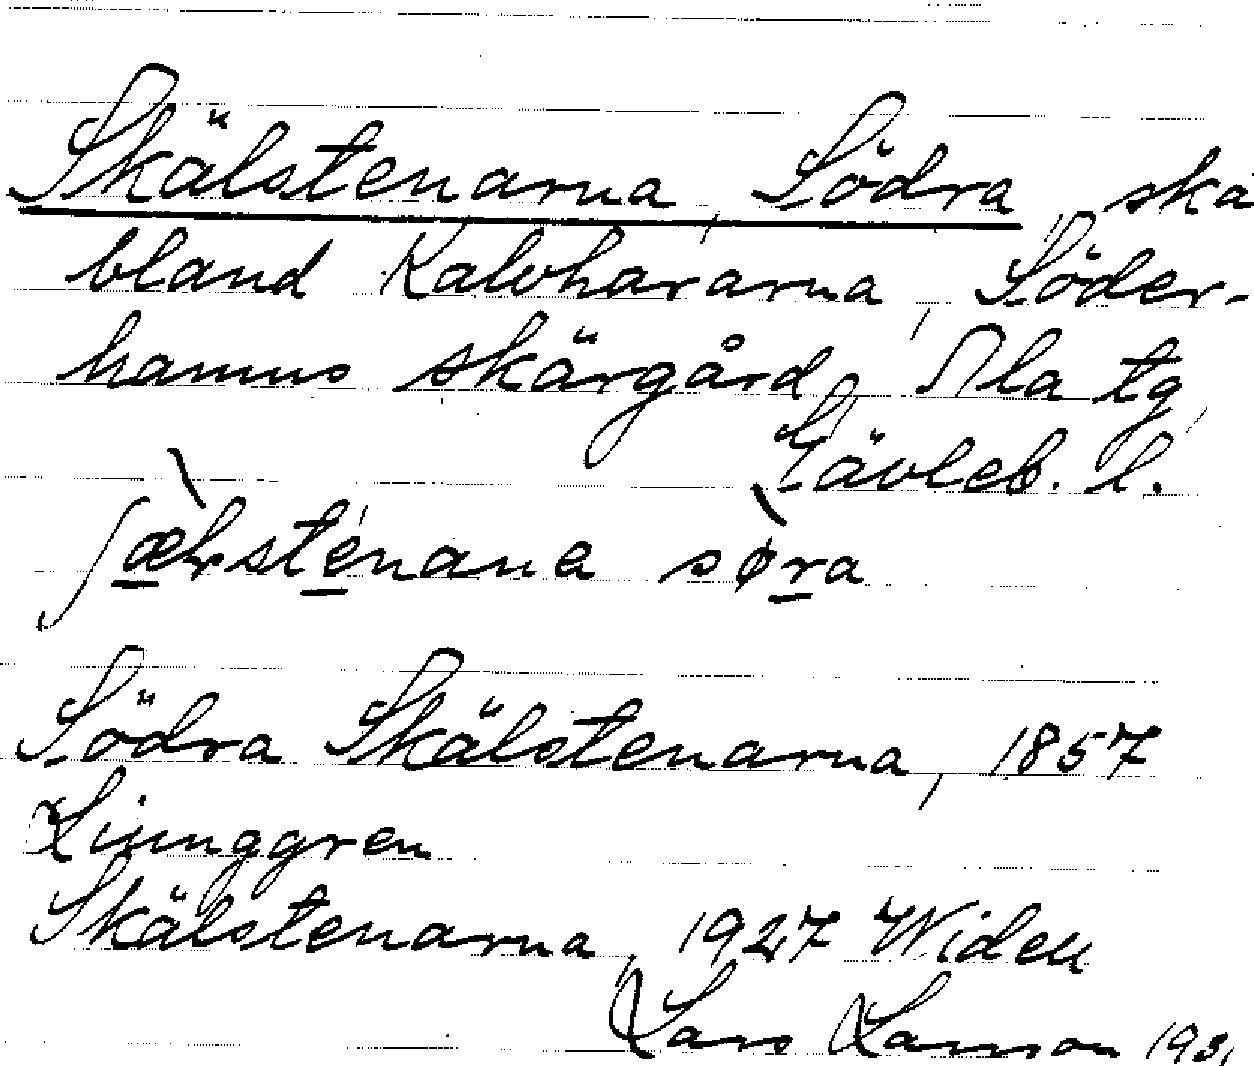 Skälstenarna, Södra, skä
bland Kalvhararna, Söder-
hamns skärgård, Ala tg,
Gävleb. l.
ʃæ̀ḷstenana sø̀ra
Södra Skälstenarna, 1857
Ljunggren
Skälstenarna, 1927 Widen
Lars Larsson 193